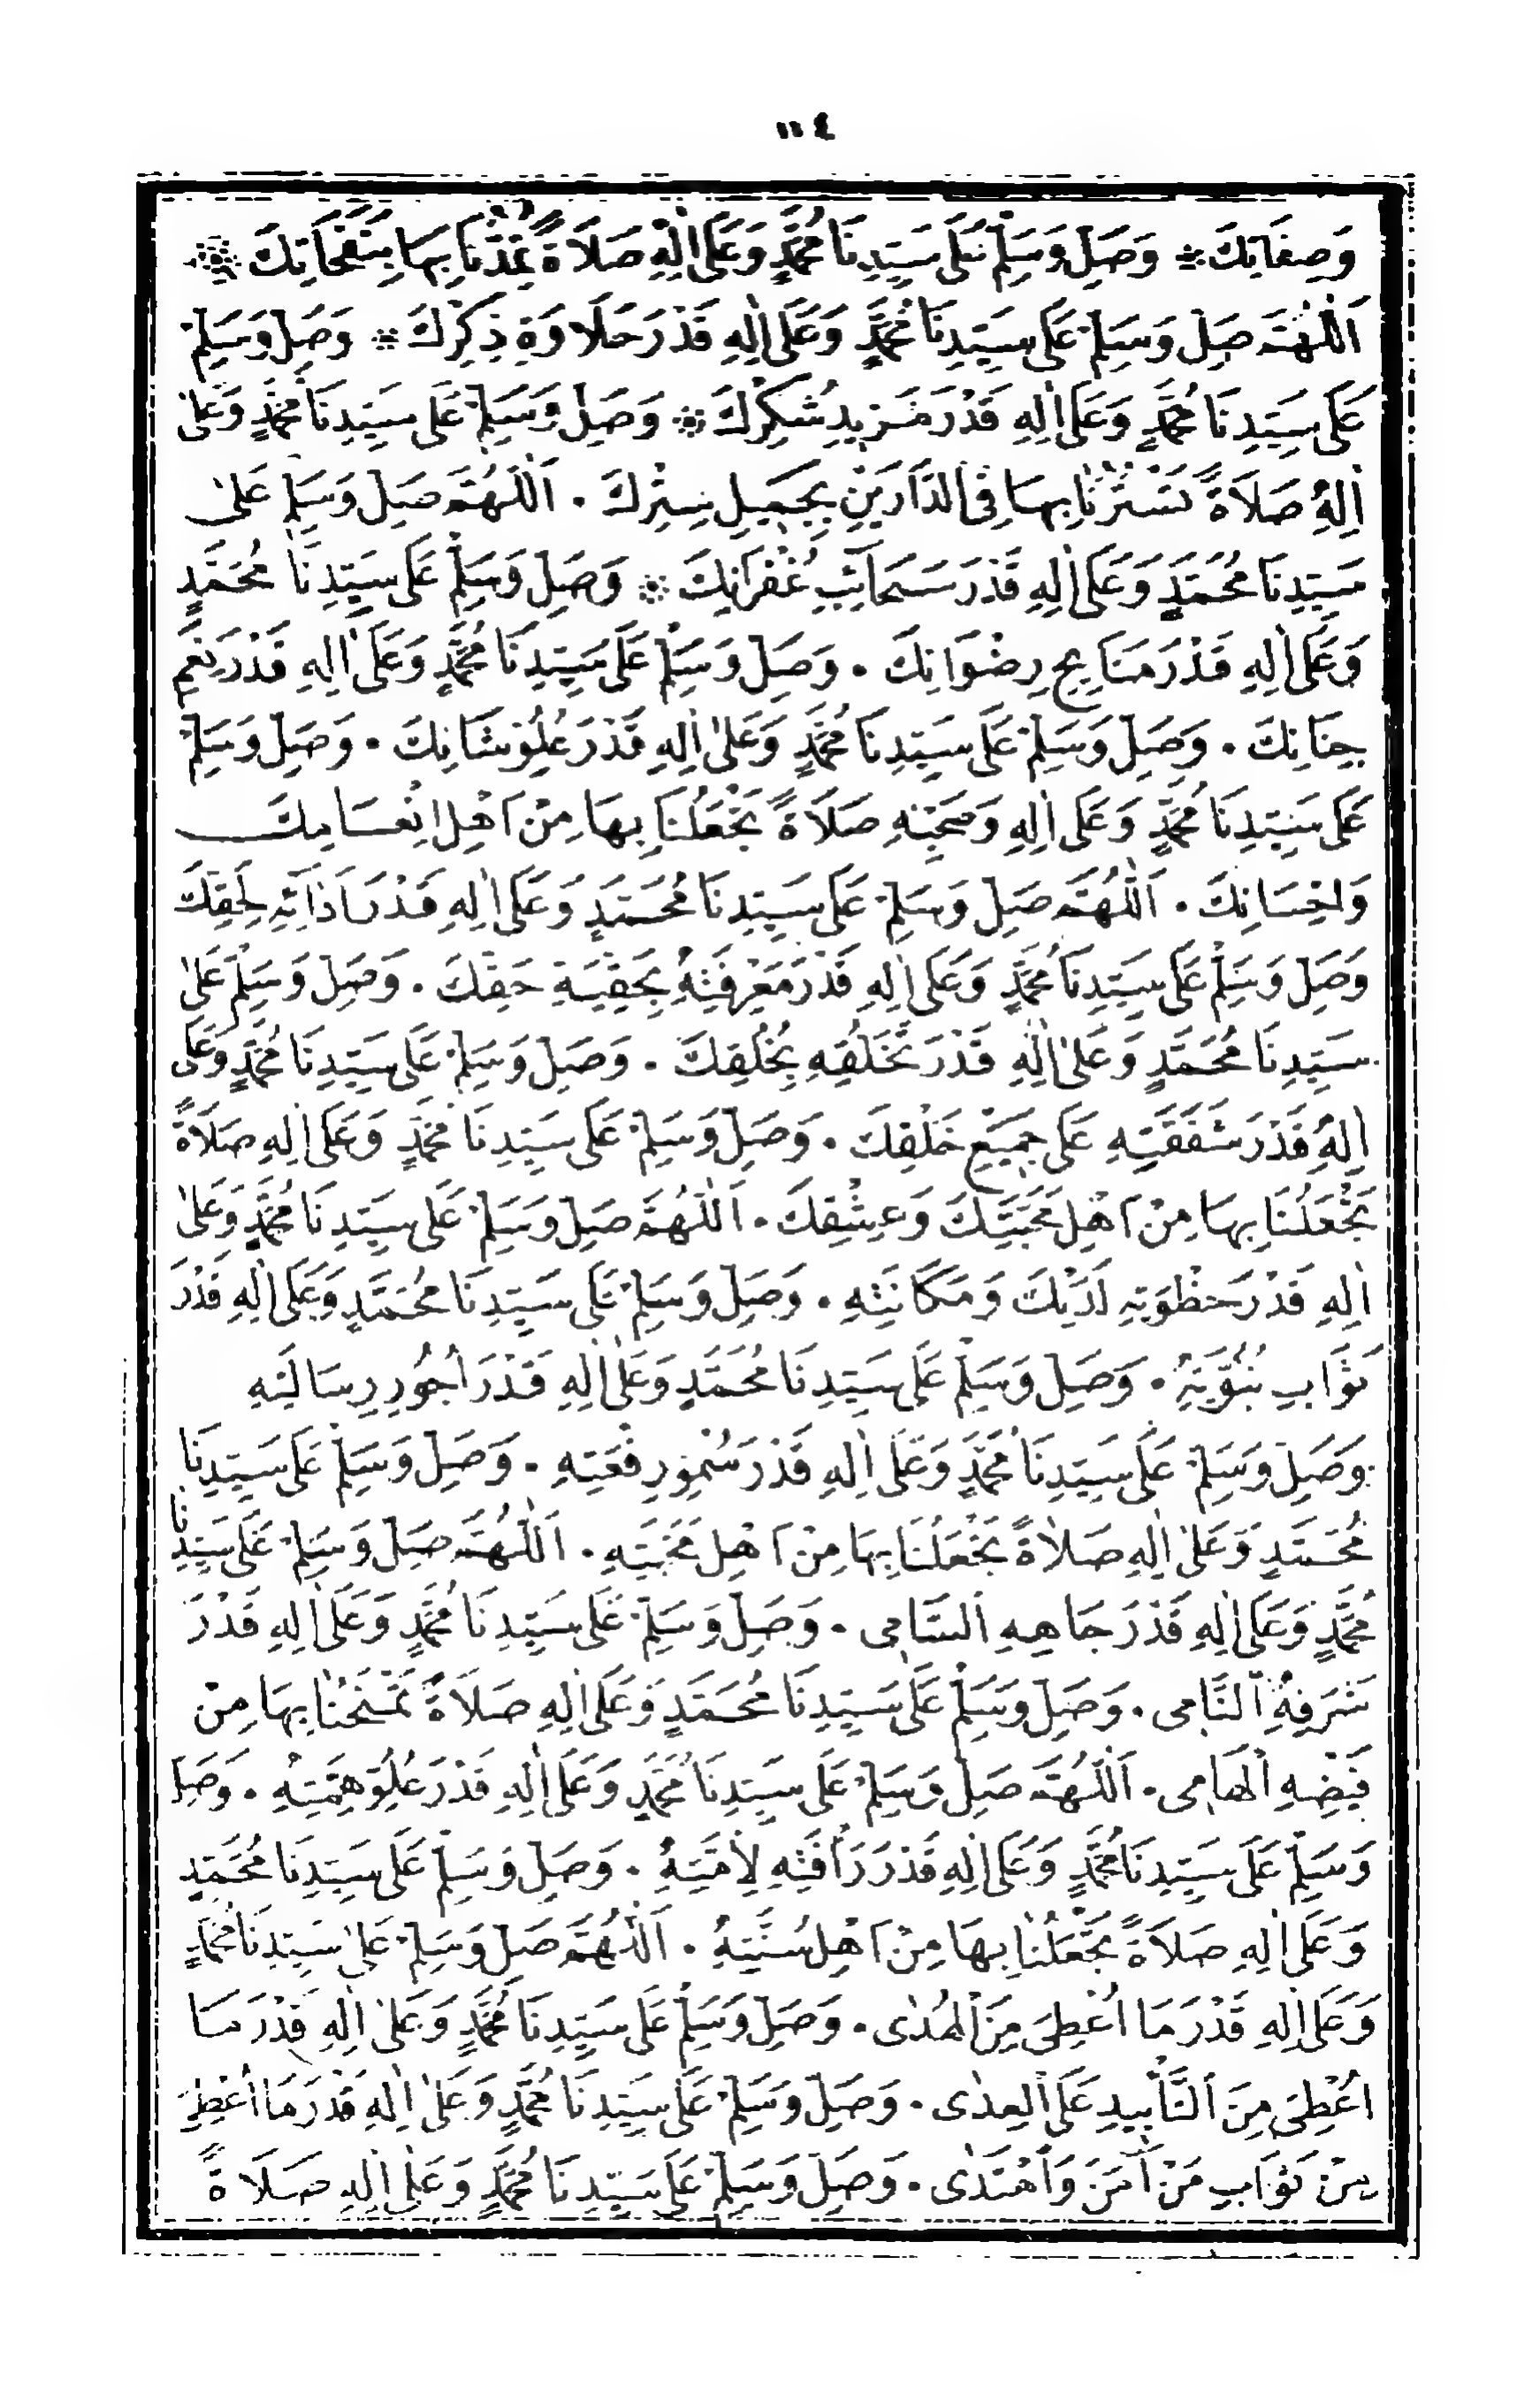 ١١٤
وَصِفَاتِكَ ❊ وَصَلِّ وَسَلِّمْ عَلَى سَيِّدِنَا مُحَمَّدٍ وَعَلَى اٰلِهِ صَلَاةً تُمِدُّنَا بِهَا بِنَفَحَاتِكَ ❊
اَللّٰهُمَّ صَلِّ وَسَلِّمْ عَلَى سَيِّدِنَا مُحَمَّدٍ وَعَلَى اٰلِهِ قَدْرَ حَلَاوَةِ ذِكْرِكَ ❊ وَصَلِّ وَسَلِّمْ
عَلَى سَيِّدِنَا مُحَمَّدٍ وَعَلَى اٰلِهِ قَدْرَ مَزِيدِ شُكْرِكَ ❊ وَصَلِّ وَسَلِّمْ عَلَى سَيِّدِنَا مُحَمَّدٍ وَعَلٰى
اٰلِهِ صَلَاةً تَسْتُرُنَا بِهَا فِى الدَّارَيْنِ بِجَمِيلِ سِتْرِكَ . اَللّٰهُمَّ صَلِّ وَسَلِّمْ عَلٰى
سَيِّدِنَا مُحَمَّدٍ وَعَلَى اٰلِهِ قَدْرَ سَحَائِبِ غُفْرَانِكَ ❊ وَصَلِّ وَسَلِّمْ عَلَى سَيِّدِنَا مُحَمَّدٍ
وَعَلَى اٰلِهِ قَدْرَ مَنَايِحِ رِضْوَانِكَ . وَصَلِّ وَسَلِّمْ عَلَى سَيِّدِنَا مُحَمَّدٍ وَعَلَى اٰلِهِ قَدْرَ نِعَمِ
جِنَانِكَ . وَصَلِّ وَسَلِّمْ عَلَى سَيِّدِنَا مُحَمَّدٍ وَعَلٰى اٰلِهِ قَدْرَ عُلُوِّ شَانِكَ . وَصَلِّ وَسَلِّمْ
عَلَى سَيِّدِنَا مُحَمَّدٍ وَعَلَى اٰلِهِ وَصَحْبِهِ صَلَاةً تَجْعَلُنَا بِهَا مِنْ اَهْلِ اِنْعَامِكَ
وَاِحْسَانِكَ . اَللّٰهُمَّ صَلِّ وَسَلِّمْ عَلَى سَيِّدِنَا مُحَمَّدٍ وَعَلَى اٰلِهِ قَدْرَ اَدَائِهِ لِحَقِّكَ
وَصَلِّ وَسَلِّمْ عَلَى سَيِّدِنَا مُحَمَّدٍ وَعَلَى اٰلِهِ قَدْرَ مَعْرِفَتِهِ بِحَقِّيَّةِ حَقِّكَ . وَصَلِّ وَسَلِّمْ عَلٰى
سَيِّدِنَا مُحَمَّدٍ وَعَلٰى اٰلِهِ قَدْرَ تَخَلُّقِهِ بِخُلُقِكَ . وَصَلِّ وَسَلِّمْ عَلَى سَيِّدِنَا مُحَمَّدٍ وَعَلَى
اٰلِهِ قَدْرَ شَفَقَتِهِ عَلَى جَمِيعِ خَلْقِكَ . وَصَلِّ وَسَلِّمْ عَلَى سَيِّدِنَا مُحَمَّدٍ وَعَلَى اٰلِهِ صَلَاةً
تَجْعَلُنَا بِهَا مِنْ اَهْلِ مَحَبَّتِكَ وَعِشْقِكَ . اَللّٰهُمَّ صَلِّ وَسَلِّمْ عَلَى سَيِّدِنَا مُحَمَّدٍ وَعَلٰى
اٰلِهِ قَدْرَ حَظْوَتِهِ لَدَيْكَ وَمَكَانَتِهِ . وَصَلِّ وَسَلِّمْ عَلَى سَيِّدِنَا مُحَمَّدٍ وَعَلَى اٰلِهِ قَدْرَ
ثَوَابِ نُبُوَّتِهِ . وَصَلِّ وَسَلِّمْ عَلَى سَيِّدِنَا مُحَمَّدٍ وَعَلٰى اٰلِهِ قَدْرَ اُجُورِ رِسَالَتِهِ
وَصَلِّ وَسَلِّمْ عَلَى سَيِّدِنَا مُحَمَّدٍ وَعَلَى اٰلِهِ قَدْرَ سُمُوِّ رِفْعَتِهِ . وَصَلِّ وَسَلِّمْ عَلَى سَيِّدِنَا
مُحَمَّدٍ وَعَلٰى اٰلِهِ صَلَاةً تَجْعَلُنَا بِهَا مِنْ اَهْلِ مَحَبَّتِهِ . اَللّٰهُمَّ صَلِّ وَسَلِّمْ عَلَى سَيِّدِنَا
مُحَمَّدٍ وَعَلَى اٰلِهِ قَدْرَ جَاهِهِ السَّامِى . وَصَلِّ وَسَلِّمْ عَلَى سَيِّدِنَا مُحَمَّدٍ وَعَلَى اٰلِهِ قَدْرَ
شَرَفِهِ النَّامِى . وَصَلِّ وَسَلِّمْ عَلَى سَيِّدِنَا مُحَمَّدٍ وَعَلَى اٰلِهِ صَلَاةً تَمْنَحُنَا بِهَا مِنْ
فَيْضِهِ الْهَامِى . اَللّٰهُمَّ صَلِّ وَسَلِّمْ عَلَى سَيِّدِنَا مُحَمَّدٍ وَعَلَى اٰلِهِ قَدْرَ عُلُوِّ هِمَّتِهِ . وَصَلِّ
وَسَلِّمْ عَلَى سَيِّدِنَا مُحَمَّدٍ وَعَلَى اٰلِهِ قَدْرَ رَأْفَتِهِ لِأُمَّتِهِ . وَصَلِّ وَسَلِّمْ عَلَى سَيِّدِنَا مُحَمَّدٍ
وَعَلَى اٰلِهِ صَلَاةً تَجْعَلُنَا بِهَا مِنْ اَهْلِ سُنَّتِهِ . اَللّٰهُمَّ صَلِّ وَسَلِّمْ عَلٰى سَيِّدِنَا مُحَمَّدٍ
وَعَلَى اٰلِهِ قَدْرَ مَا اُعْطِىَ مِنَ الْهُدٰى . وَصَلِّ وَسَلِّمْ عَلَى سَيِّدِنَا مُحَمَّدٍ وَعَلٰى اٰلِهِ قَدْرَ مَا
اُعْطِىَ مِنَ التَّأْيِيدِ عَلَى الْعِدٰى . وَصَلِّ وَسَلِّمْ عَلَى سَيِّدِنَا مُحَمَّدٍ وَعَلٰى اٰلِهِ قَدْرَ مَا اُعْطِىَ
مِنْ ثَوَابِ مَنْ اٰمَنَ وَاهْتَدٰى . وَصَلِّ وَسَلِّمْ عَلَى سَيِّدِنَا مُحَمَّدٍ وَعَلٰى اٰلِهِ صَلَاةً